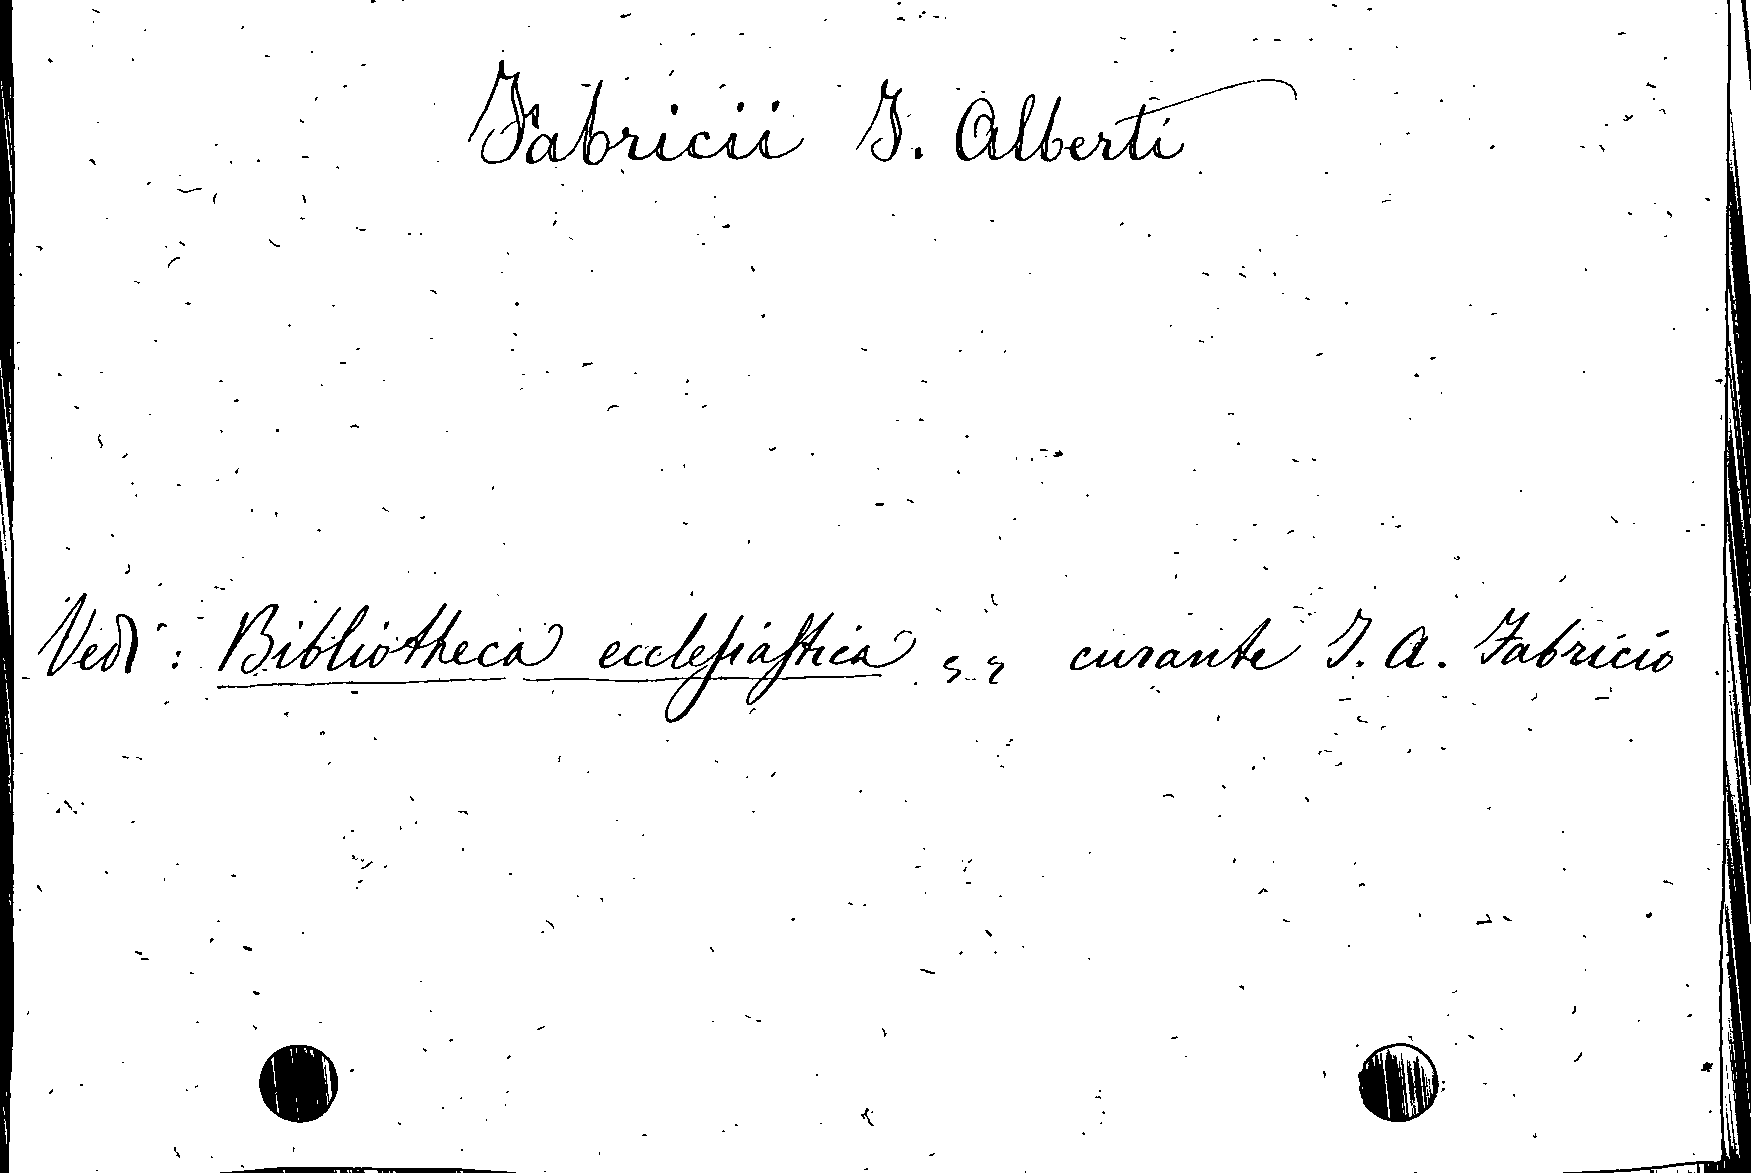 Fabricii J. Alberti
Vedi: Bibliotheca ecclesiastica ,, curante J. A. Fabricio